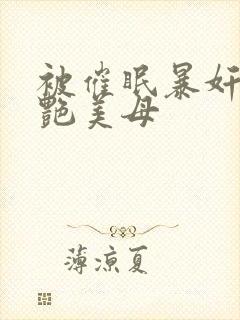 被催眠暴奸
艷美母
薄涼夏